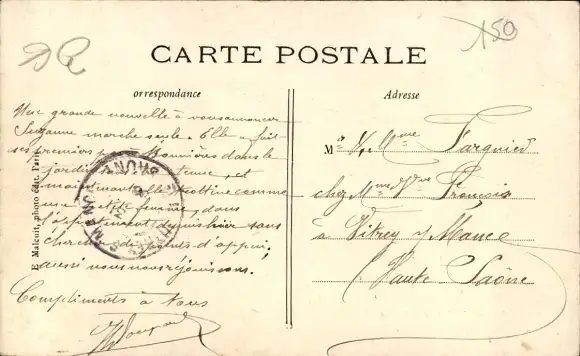 150
CARTE POSTALE
orrespondance
Adresse
Une grande nouvelle à vous annoncer
Suzanne marche seule. Elle a fait
ses premiers pas à dans le
jardin tenue, et
maintenant elle trottine comme
une petite femme, dans
l'appartement depuis hier sans
chercher de points d'appui,
aussi nous nous réjouissons.
Compliments à tous
E. Malcuit, photo édit. Paris
M r V. Mme
chez Mme Vve François
à Vitrey s/ Mance
Haute Saône